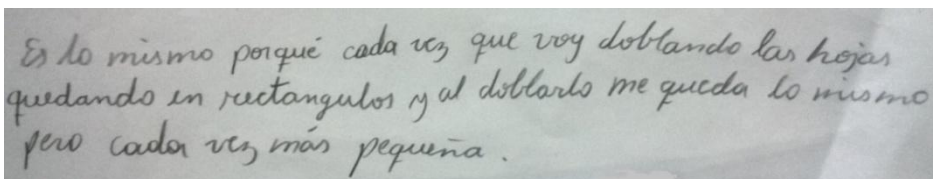 Es lo mismo porqué cada vez que voy doblando las hojas
quedando en rectangulos y al doblarlo me queda lo mismo
pero cada vez más pequeña.